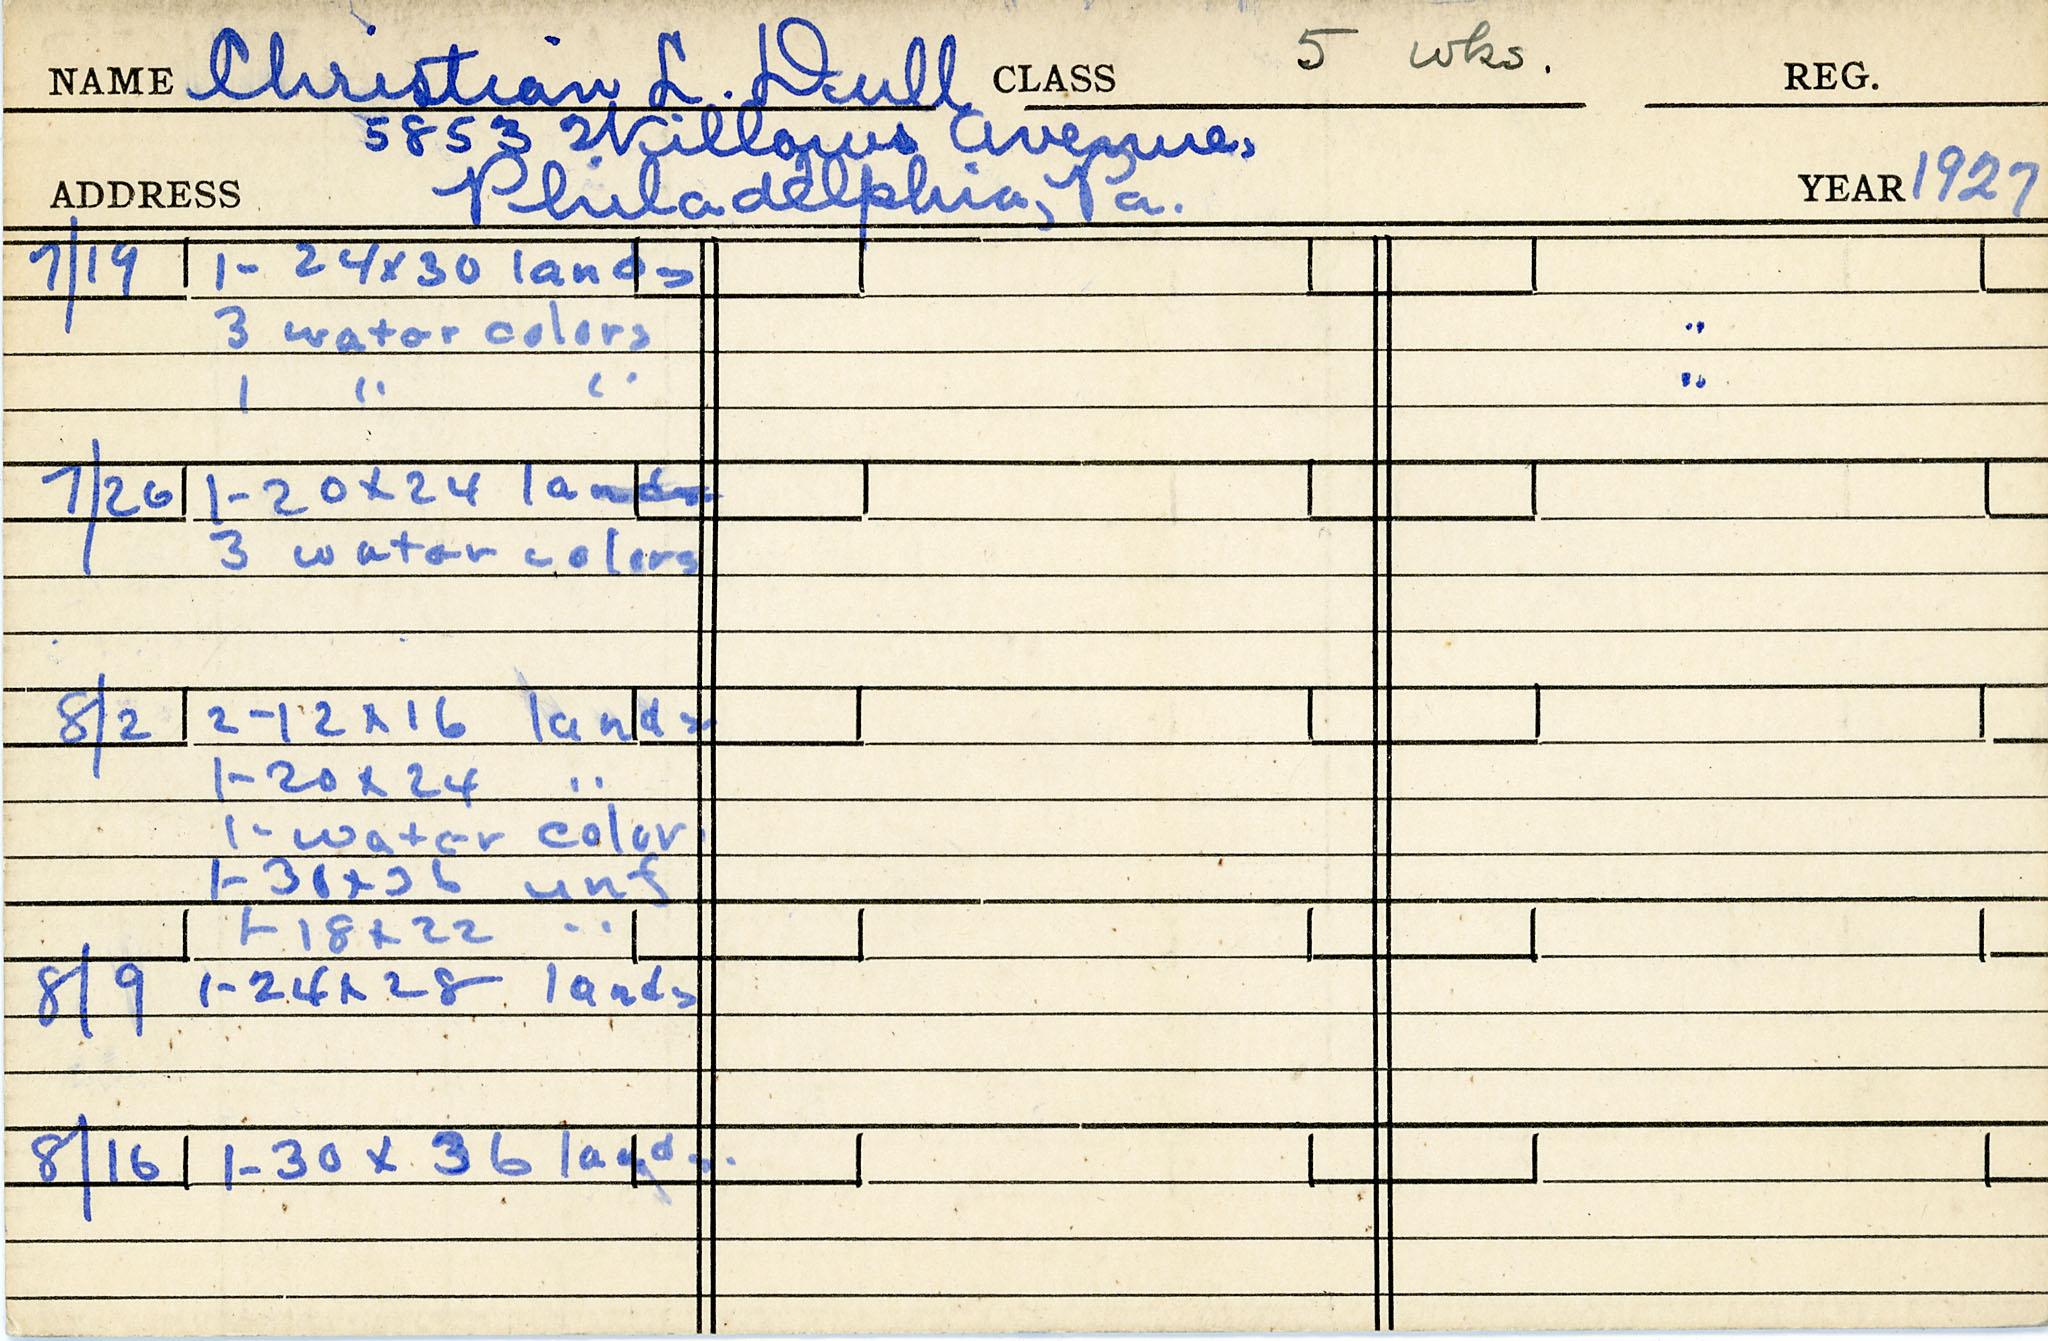 NAME Christian L. Deull CLASS 5 wks. REG.
5853 Willows Avenue,
ADDRESS Philadelphia, Pa. YEAR 1927
7/19 1- 24x30 lands
3 water colors "
1 " " "
7/26 1-20x24 lands
3 water colors
8/2 2-12x16 lands
1-20x24 "
1- water color
1-30x36 unf
1-18x22 "
8/9 1-24x28 lands
8/16 1-30 x 36 lands.